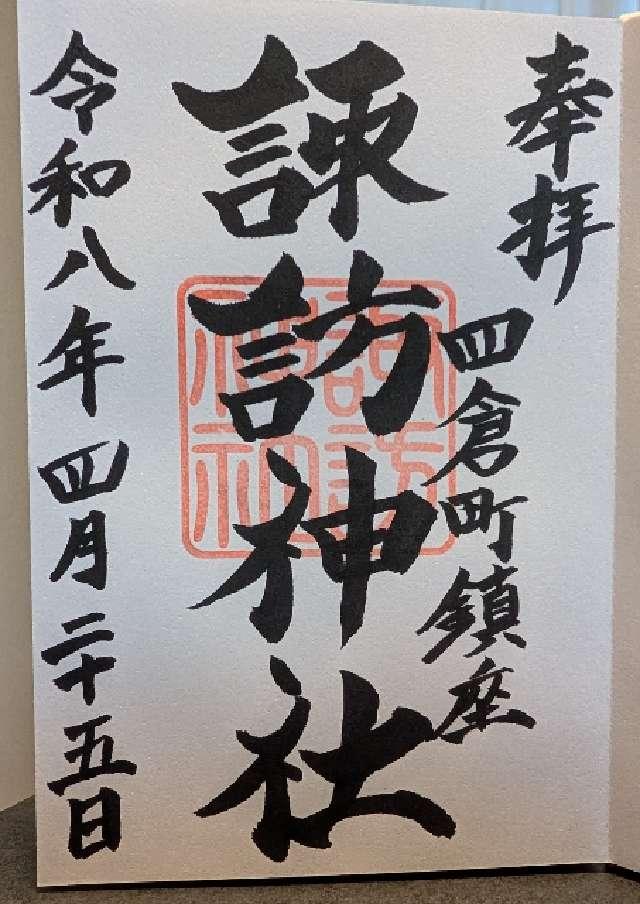 奉拝
四倉町鎮座
諏訪神社
諏訪神社
令和八年四月二十五日